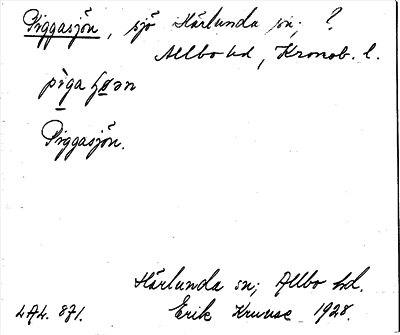 Piggasjön, sjö Härlunda sn; ?
Allbo hd, Kronob. l.
Piggasjön.
Härlunda sn; Allbo hd.
Erik Kruuse 1928.